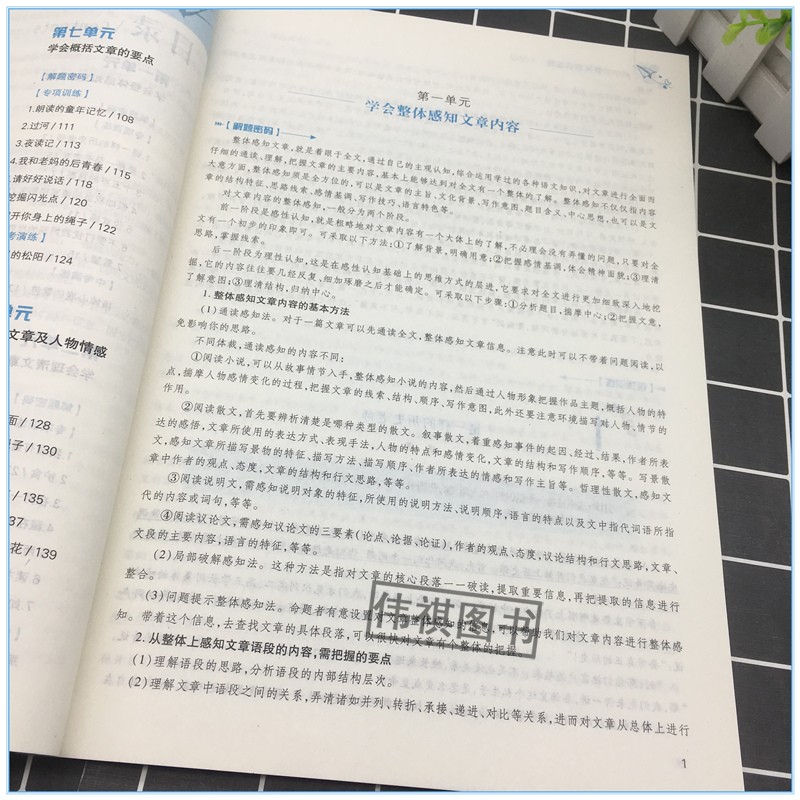 第七单元
学会概括文章的要点
【解题密码】
【专项训练】
1.朗读的童年记忆/108
2.过河/111
3.夜读记/113
4.我和老妈的后青春/115
请好好说话/118
挖掘闪光点/120
开你身上的绳子/122
考演练】
的松阳/124
单元
文章及人物情感
面/128
绳子/130
/135
37
花/139
第一单元
学会整体感知文章内容
【解题密码】
整体感知文章,就是着眼于全文,通过自己的主观认知,综合运用学过的各种语文知识,对文章进行全面而
仔细的通读、理解,把握文章的主要内容,基本上能够达到对全文有一个整体的了解。整体感知不仅仅指内容
大意方面,整体感知须是全方位的,可以是文章的主旨、文化背景、写作意图、题目含义、中心思想,也可以是文
章的结构特征、思路线索、感情基调、写作技巧、语言特色等。
对文章内容的整体感知,一般分为两个阶段。
前一阶段是感性认知,就是粗略地对文章内容有一个大体上的了解,不必理会没有弄懂的问题,只要对全
文有一个初步的印象即可。可采取以下方法:①了解背景,明确用意;②把握感情基调,体会精神面貌;③理清
思路,掌握线索。
后一阶段为理性认知,这是在感性认知基础上的思维方式的层进,它要求对全文进行更加细致深入地挖
掘,它的内容往往要几经反复、细加琢磨之后才能确定。可采取以下步骤:①分析题目,揣摩中心;②把握文意,
了解意图;③理清结构,归纳中心。
1.整体感知文章内容的基本方法
(1)通读感知法。对于一篇文章可以先通读全文,整体感知文章信息。注意此时可以不带着问题阅读,以
免影响你的思路。
不同体裁,通读感知的内容不同:
①阅读小说,可以从故事情节入手,整体感知小说的内容,然后通过人物形象把握作品主题,概括人物的特
点,揣摩人物感情变化的过程,把握文章的线索、结构、顺序、写作意图,此外还要注意环境描写对人物、情节的
作用。
②阅读散文,首先要辨析清楚是哪种类型的散文。叙事散文,着重感知事件的起因、经过、结果,作者所表
达的感悟,文章所使用的表达方式、表现手法,人物的特点和感情变化,文章的结构和写作顺序,等等。写景散
文,感知文章所描写景物的特征、描写方法、描写顺序、作者所表达的情感和写作主旨等。哲理性散文,感知文
章中作者的观点、态度,文章的结构和行文思路,等等。
③阅读说明文,需感知说明对象的特征,所使用的说明方法、说明顺序,语言的特点以及文中指代词语所指
代的内容或词句,等等。
④阅读议论文,需感知议论文的三要素(论点、论据、论证),作者的观点、态度,议论结构和行文思路,文章、
文段的主要内容,语言的特征,等等。
(2)局部破解感知法。这种方法是指对文章的核心段落一一破读,提取重要信息,再把提取的信息进行
整合。
(3)问题提示整体感知法。命题者有意设置对文章整体感知的信息,可以帮助我们对文章内容进行整体感
知。带着这个信息,去查找文章的具体段落,可以很快对文章有个整体的把握。
2.从整体上感知文章语段的内容,需把握的要点
(1)理解语段的思路,分析语段的内部结构层次。
(2)理解文章中语段之间的关系,弄清诸如并列、转折、承接、递进、对比等关系,进而对文章从总体上进行
1
伟祺图书